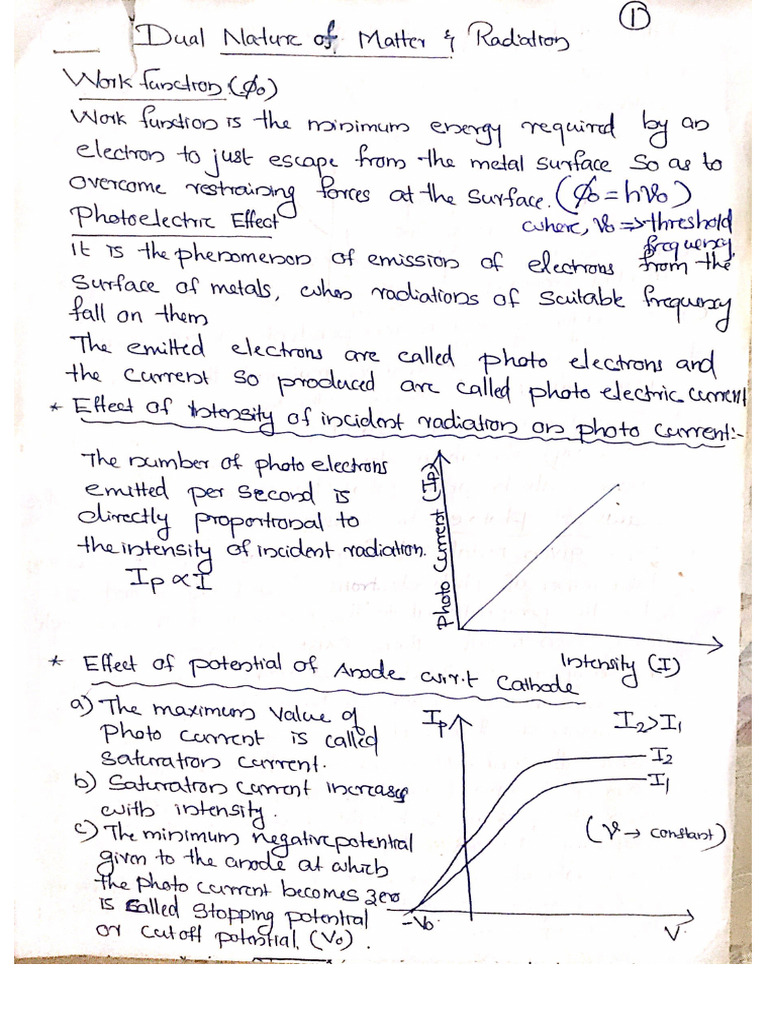 1
Dual Nature of Matter & Radiation
Work function (ϕ₀)
Work function is the minimum energy required by an
electron to just escape from the metal surface so as to
overcome restraining forces at the surface. (ϕ₀ = hν₀)
Photoelectric Effect
where, ν₀ => threshold
frequency.
It is the phenomenon of emission of electrons from the
surface of metals, when radiations of suitable frequency
fall on them
The emitted electrons are called photo electrons and
the current so produced are called photo electric current
* Effect of Intensity of incident radiation on photo current:-
The number of photo electrons
emitted per second is
directly proportional to
the intensity of incident radiation.
Iₚ ∝ I
Photo Current (Iₚ)
Intensity (I)
* Effect of potential of Anode w.r.t Cathode
a) The maximum value of
photo current is called
saturation current.
b) Saturation current increases
with intensity.
c) The minimum negative potential
given to the anode at which
the photo current becomes zero
is called stopping potential
or cutoff potential. (V₀).
Iₚ
I₂ > I₁
I₂
I₁
(ν → constant)
-V₀
V